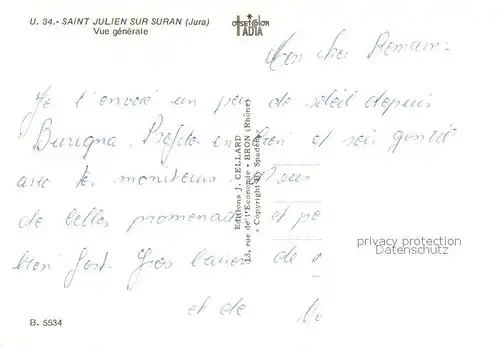 U. 34.- SAINT JULIEN SUR SURAN (Jura)
Vue générale
OFFSET COLOR
IADIA
Mon cher Romain:
Je t'envoie un peu de soleil depuis
Burigna. Profites en bien et sois gentil
avec tes moniteurs. Nous
de belles promenades et pe
bien fort. Gros baisers de
et de
Editions J. CELLARD
13, rue de l'Economie - BRON (Rhône)
« Copyright By Spadem »
privacy protection
Datenschutz
B. 5534